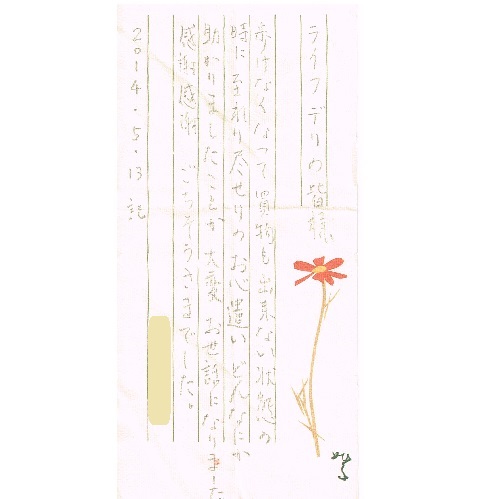 ライフデリの皆様
歩けなくなって買物も出来ない状態の
時に至れり尽せりのお心遣いどんなにか
助かりましたことか大変お世話になりました
感謝感謝 ごちそうさまでした。
2014.5.13 記